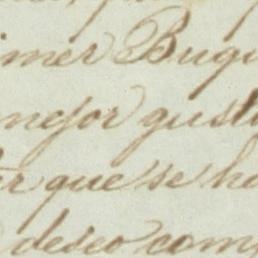 imer Buqu
mejor gust
que se ha
deseo comp